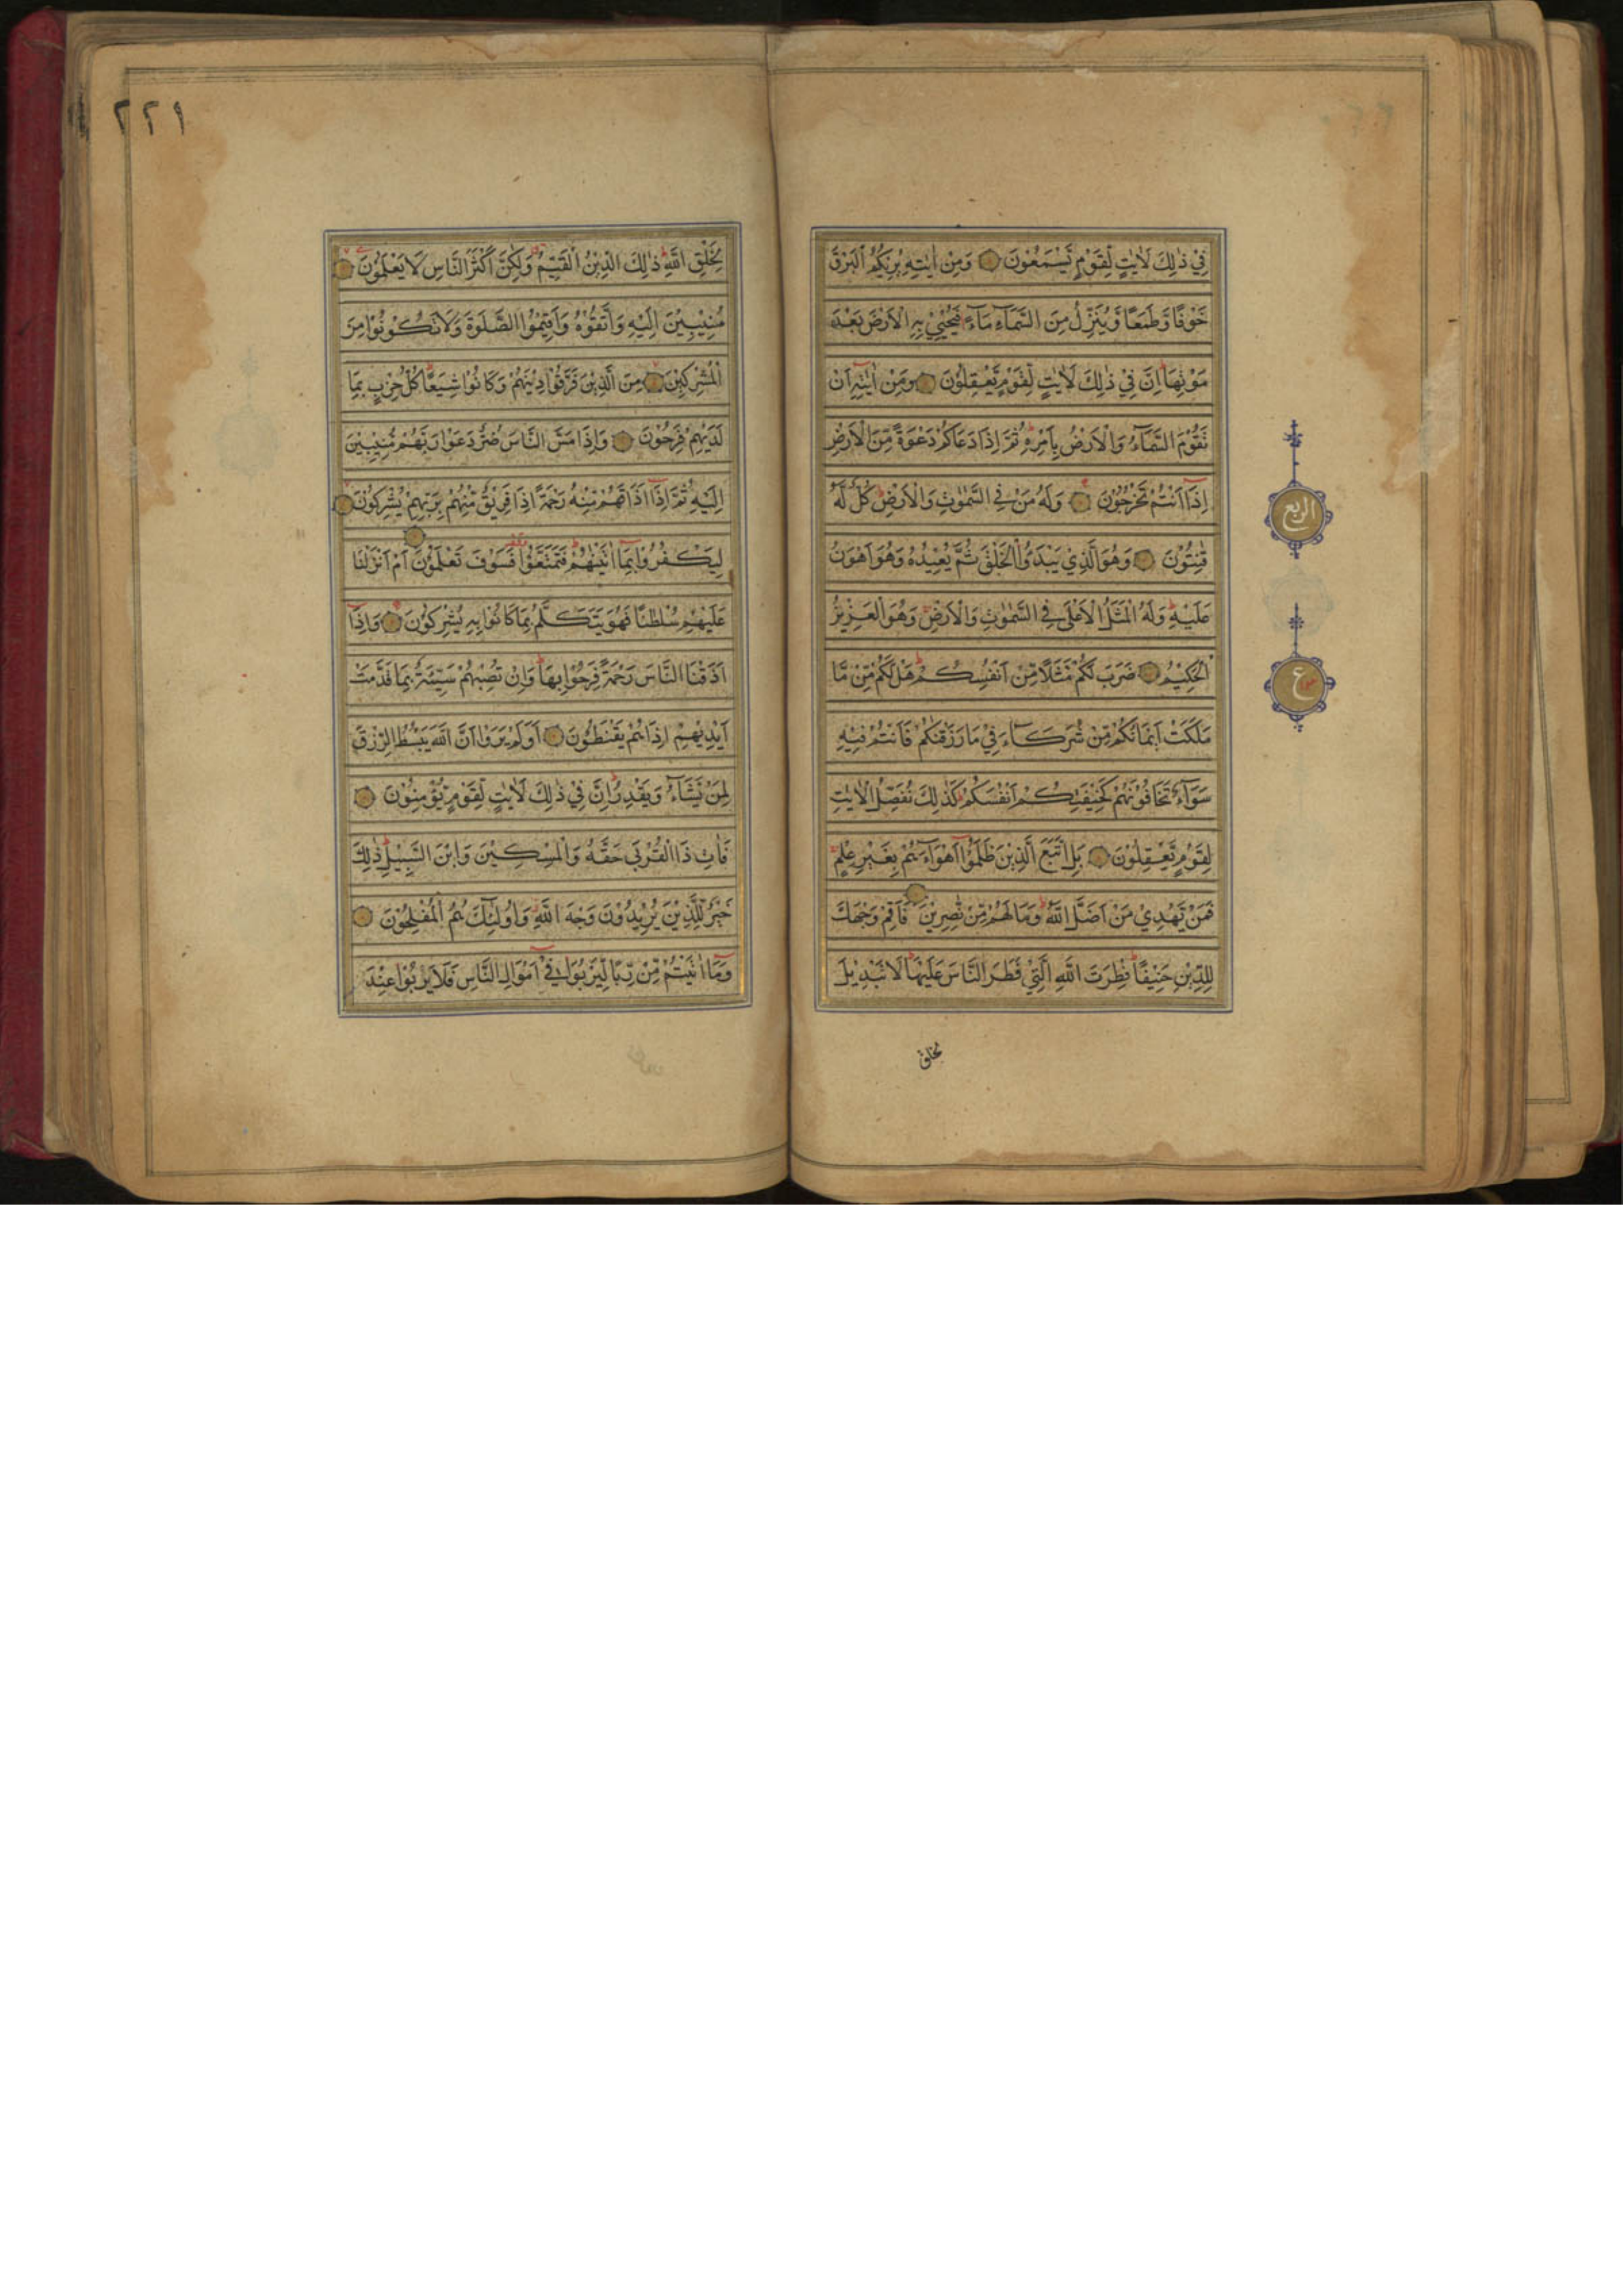 فِيْ ذٰلِكَ لَاٰيٰتٍ لِّقَوْمٍ يَّسْمَعُوْنَ وَمِنْ اٰيٰتِهٖ يُرِيْكُمُ الْبَرْقَ
خَوْفًا وَّطَمَعًا وَّيُنَزِّلُ مِنَ السَّمَآءِ مَآءً فَيُحْيٖ بِهِ الْاَرْضَ بَعْدَ
مَوْتِهَا اِنَّ فِيْ ذٰلِكَ لَاٰيٰتٍ لِّقَوْمٍ يَّعْقِلُوْنَ وَمِنْ اٰيٰتِهٖ اَنْ
تَقُوْمَ السَّمَآءُ وَالْاَرْضُ بِاَمْرِهٖ ثُمَّ اِذَا دَعَاكُمْ دَعْوَةً مِّنَ الْاَرْضِ
اِذَا اَنْتُمْ تَخْرُجُوْنَ وَلَهٗ مَنْ فِي السَّمٰوٰتِ وَالْاَرْضِ كُلٌّ لَّهٗ
قٰنِتُوْنَ وَهُوَ الَّذِيْ يَبْدَؤُا الْخَلْقَ ثُمَّ يُعِيْدُهٗ وَهُوَ اَهْوَنُ
عَلَيْهِ وَلَهُ الْمَثَلُ الْاَعْلٰى فِي السَّمٰوٰتِ وَالْاَرْضِ وَهُوَ الْعَزِيْزُ
الْحَكِيْمُ ضَرَبَ لَكُمْ مَّثَلًا مِّنْ اَنْفُسِكُمْ هَلْ لَّكُمْ مِّنْ مَّا
مَلَكَتْ اَيْمَانُكُمْ مِّنْ شُرَكَآءَ فِيْ مَا رَزَقْنٰكُمْ فَاَنْتُمْ فِيْهِ
سَوَآءٌ تَخَافُوْنَهُمْ كَخِيْفَتِكُمْ اَنْفُسَكُمْ كَذٰلِكَ نُفَصِّلُ الْاٰيٰتِ
لِقَوْمٍ يَّعْقِلُوْنَ بَلِ اتَّبَعَ الَّذِيْنَ ظَلَمُوْا اَهْوَآءَهُمْ بِغَيْرِ عِلْمٍ
فَمَنْ يَّهْدِيْ مَنْ اَضَلَّ اللّٰهُ وَمَا لَهُمْ مِّنْ نّٰصِرِيْنَ فَاَقِمْ وَجْهَكَ
لِلدِّيْنِ حَنِيْفًا فِطْرَتَ اللّٰهِ الَّتِيْ فَطَرَ النَّاسَ عَلَيْهَا لَا تَبْدِيْلَ
لخلق
الربع
ع
٢٢١
لِخَلْقِ اللّٰهِ ذٰلِكَ الدِّيْنُ الْقَيِّمُ وَلٰكِنَّ اَكْثَرَ النَّاسِ لَا يَعْلَمُوْنَ
مُنِيْبِيْنَ اِلَيْهِ وَاتَّقُوْهُ وَاَقِيْمُوا الصَّلٰوةَ وَلَا تَكُوْنُوْا مِنَ
الْمُشْرِكِيْنَ مِنَ الَّذِيْنَ فَرَّقُوْا دِيْنَهُمْ وَكَانُوْا شِيَعًا كُلُّ حِزْبٍ بِمَا
لَدَيْهِمْ فَرِحُوْنَ وَاِذَا مَسَّ النَّاسَ ضُرٌّ دَعَوْا رَبَّهُمْ مُّنِيْبِيْنَ
اِلَيْهِ ثُمَّ اِذَا اَذَاقَهُمْ مِّنْهُ رَحْمَةً اِذَا فَرِيْقٌ مِّنْهُمْ بِرَبِّهِمْ يُشْرِكُوْنَ
لِيَكْفُرُوْا بِمَا اٰتَيْنٰهُمْ فَتَمَتَّعُوْا فَسَوْفَ تَعْلَمُوْنَ اَمْ اَنْزَلْنَا
عَلَيْهِمْ سُلْطٰنًا فَهُوَ يَتَكَلَّمُ بِمَا كَانُوْا بِهٖ يُشْرِكُوْنَ وَاِذَا
اَذَقْنَا النَّاسَ رَحْمَةً فَرِحُوْا بِهَا وَاِنْ تُصِبْهُمْ سَيِّئَةٌ بِمَا قَدَّمَتْ
اَيْدِيْهِمْ اِذَا هُمْ يَقْنَطُوْنَ اَوَلَمْ يَرَوْا اَنَّ اللّٰهَ يَبْسُطُ الرِّزْقَ
لِمَنْ يَّشَآءُ وَيَقْدِرُ اِنَّ فِيْ ذٰلِكَ لَاٰيٰتٍ لِّقَوْمٍ يُّؤْمِنُوْنَ
فَاٰتِ ذَا الْقُرْبٰى حَقَّهٗ وَالْمِسْكِيْنَ وَابْنَ السَّبِيْلِ ذٰلِكَ
خَيْرٌ لِّلَّذِيْنَ يُرِيْدُوْنَ وَجْهَ اللّٰهِ وَاُولٰٓئِكَ هُمُ الْمُفْلِحُوْنَ
وَمَا اٰتَيْتُمْ مِّنْ رِّبًا لِّيَرْبُوَا فِيْ اَمْوَالِ النَّاسِ فَلَا يَرْبُوْا عِنْدَ